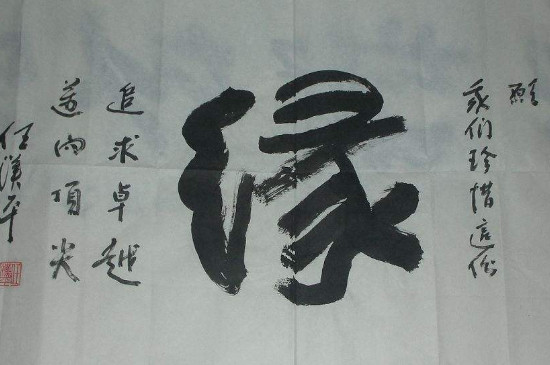 愿
我们珍惜这份
缘
追求卓越
迈向顶尖
任汉平